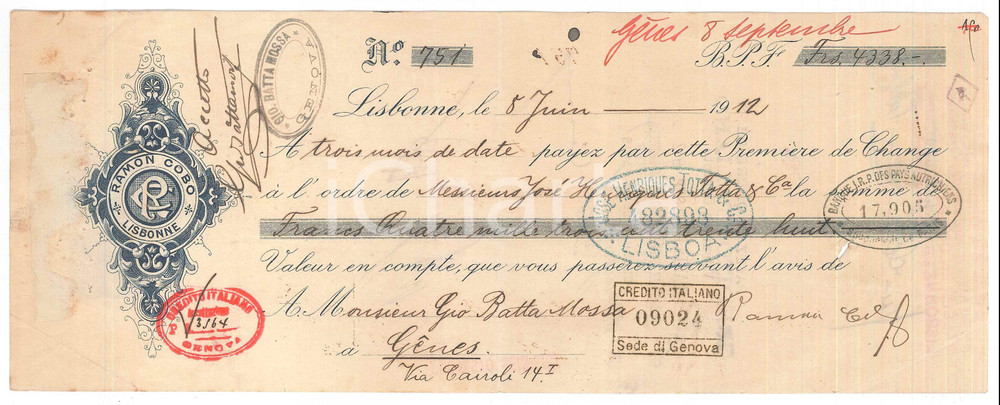 Gênes 8 Septembre
Nº 751
B.P.F. Frs. 4338.-.
Lisbonne, le 8 Juin 1912
A trois mois de date payez par cette Première de Change
à l'ordre de Messieurs José Henriques Totta & Cª la somme de
Francs Quatre mille trois cents trente huit
Valeur en compte, que vous passerez suivant l'avis de
A Monsieur Gio Batta Mossa
à Gênes.
Via Cairoli 14 I
RAMON COBO
LISBONNE
GIO BATTA MOSSA
GENOVA
Accetto
JOSÉ HENRIQUES TOTTA & Cª
492898
LISBOA
17.905
CREDITO ITALIANO
09024
Sede di Genova
Ramon Cobo
CREDITO ITALIANO
3164
GENOVA